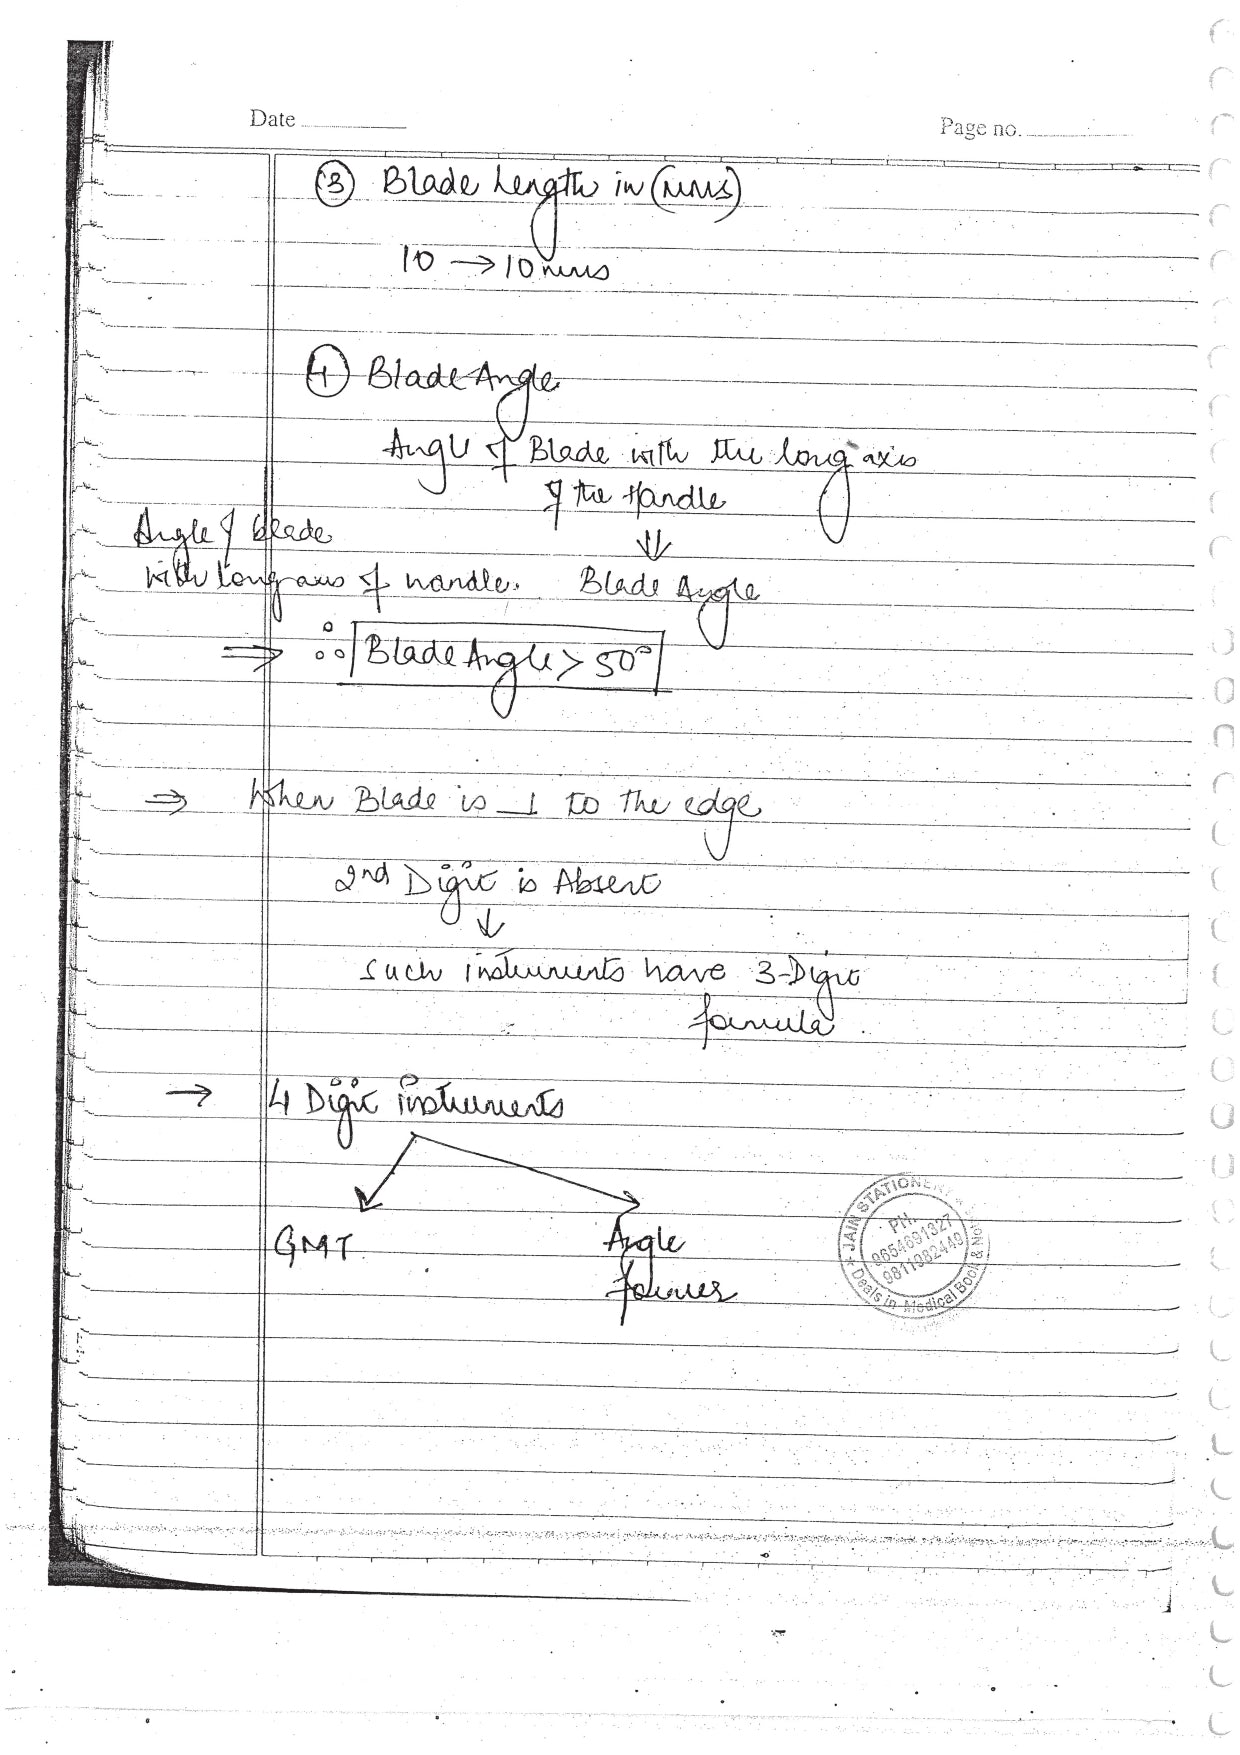 Date
Page no.
③ Blade Length in (mms)
10 → 10 mms
④ Blade Angle
Angle of Blade with the long axis
of the Handle
⇓
Angle of blade
with long axis of handle. Blade Angle
⇒ ∴ Blade Angle > 50°
⇒ When Blade is ⊥ to the edge
2nd Digit is Absent
↓
Such instruments have 3-Digit
formula.
→ 4 Digit instruments
GMT Angle
formers
JAIN STATIONER
PH.
9654691327
9811982449
Deals in Medical Book &